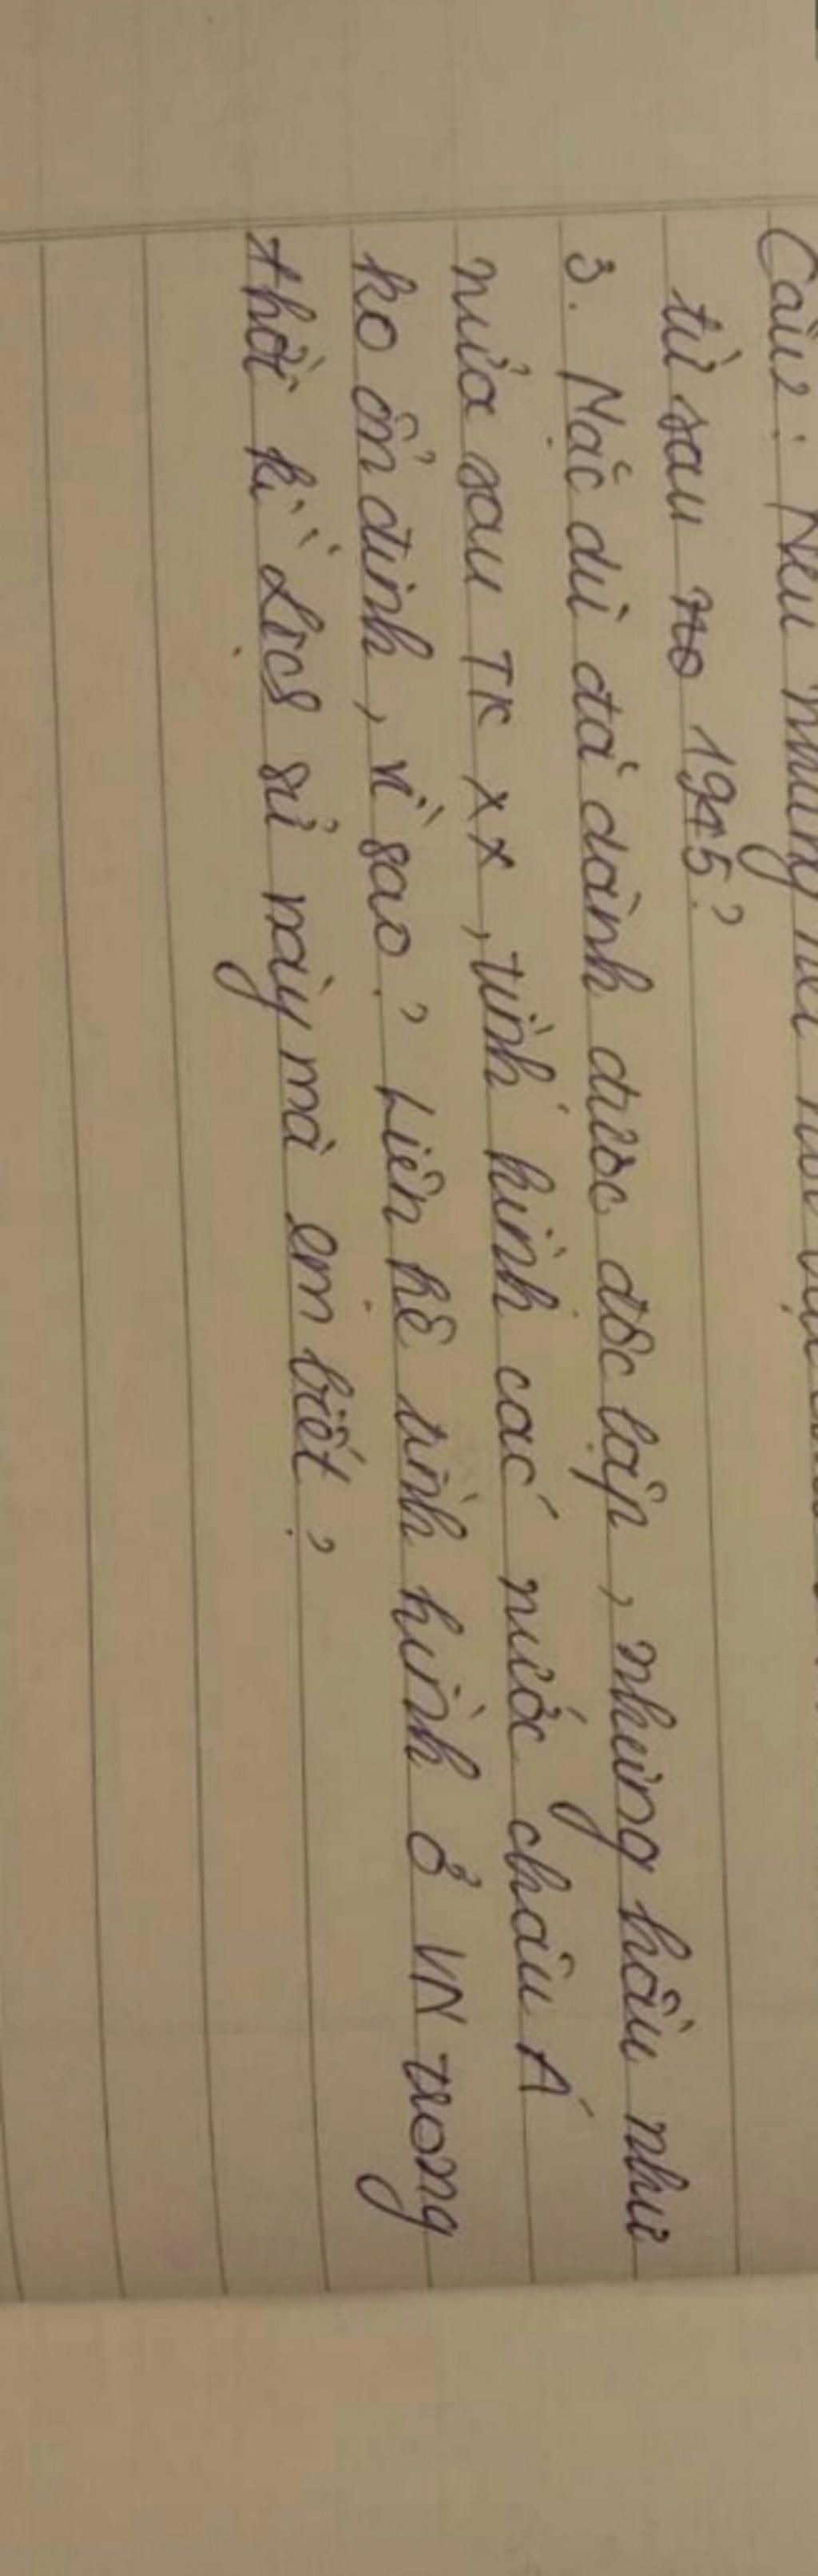 Câu 2: Nêu những nét
từ sau no 1945?
3. Mặc dù đã dành được độc lập, nhưng hầu như
nửa sau TK XX, tình hình các nước châu Á
ko ổn định, vì sao? Liên hệ tình hình ở VN trong
thời kì lịch sử này mà em biết?